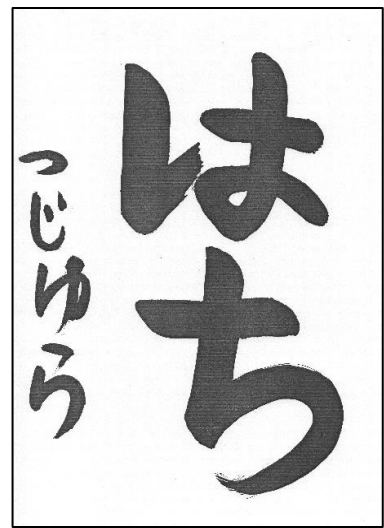 はち
つじゆら